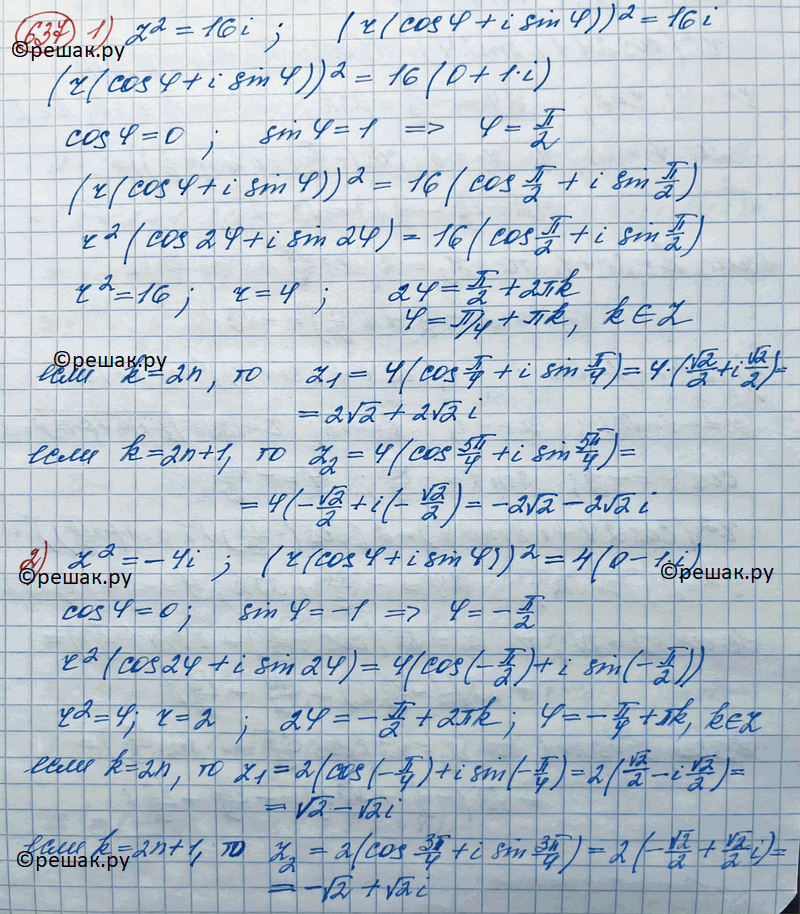 637 1) z² = 16i ; (r(cosφ + i sinφ))² = 16i
©решак.ру
(r(cosφ + i sinφ))² = 16(0 + 1·i)
cosφ = 0 ; sinφ = 1 => φ = π/2
(r(cosφ + i sinφ))² = 16(cos π/2 + i sin π/2)
r²(cos2φ + i sin2φ) = 16(cos π/2 + i sin π/2)
r² = 16 ; r = 4 ; 2φ = π/2 + 2πk
φ = π/4 + πk, k ∈ Z
©решак.ру
если k = 2n, то z₁ = 4(cos π/4 + i sin π/4) = 4·(√2/2 + i √2/2) =
= 2√2 + 2√2 i
если k = 2n+1, то z₂ = 4(cos 5π/4 + i sin 5π/4) =
= 4(-√2/2 + i(-√2/2) = -2√2 - 2√2 i
2) z² = -4i ; (r(cosφ + i sinφ))² = 4(0 - 1·i)
©решак.ру ©решак.ру
cosφ = 0 ; sinφ = -1 => φ = -π/2
r²(cos2φ + i sin2φ) = 4(cos(-π/2) + i sin(-π/2))
r² = 4; r = 2 ; 2φ = -π/2 + 2πk ; φ = -π/4 + πk, k ∈ Z
если k = 2n, то z₁ = 2(cos(-π/4) + i sin(-π/4) = 2(√2/2 - i √2/2) =
= √2 - √2i
если k = 2n+1, то z₂ = 2(cos 3π/4 + i sin 3π/4) = 2(-√2/2 + √2/2 i) =
©решак.ру
= -√2 + √2i